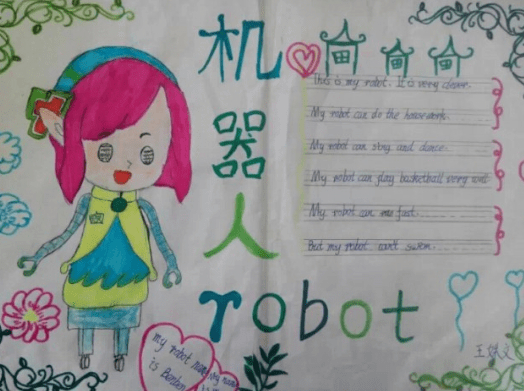 机
器
人
robot
This is my robot. It is very clever.
My robot can do the housework.
My robot can sing and dance.
My robot can play basketball very well
My robot can run fast.
But my robot can't swim.
my robot
is
王